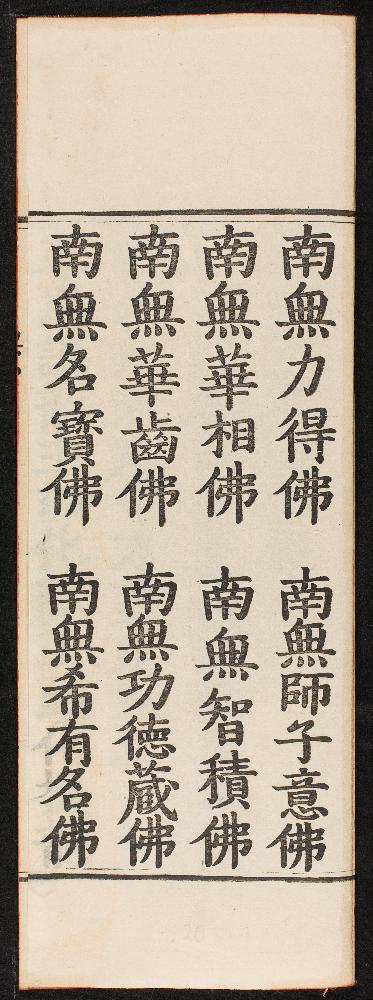 南無力得佛 南無師子意佛
南無華相佛 南無智積佛
南無華齒佛 南無功德蔵佛
南無名寶佛 南無希有名佛